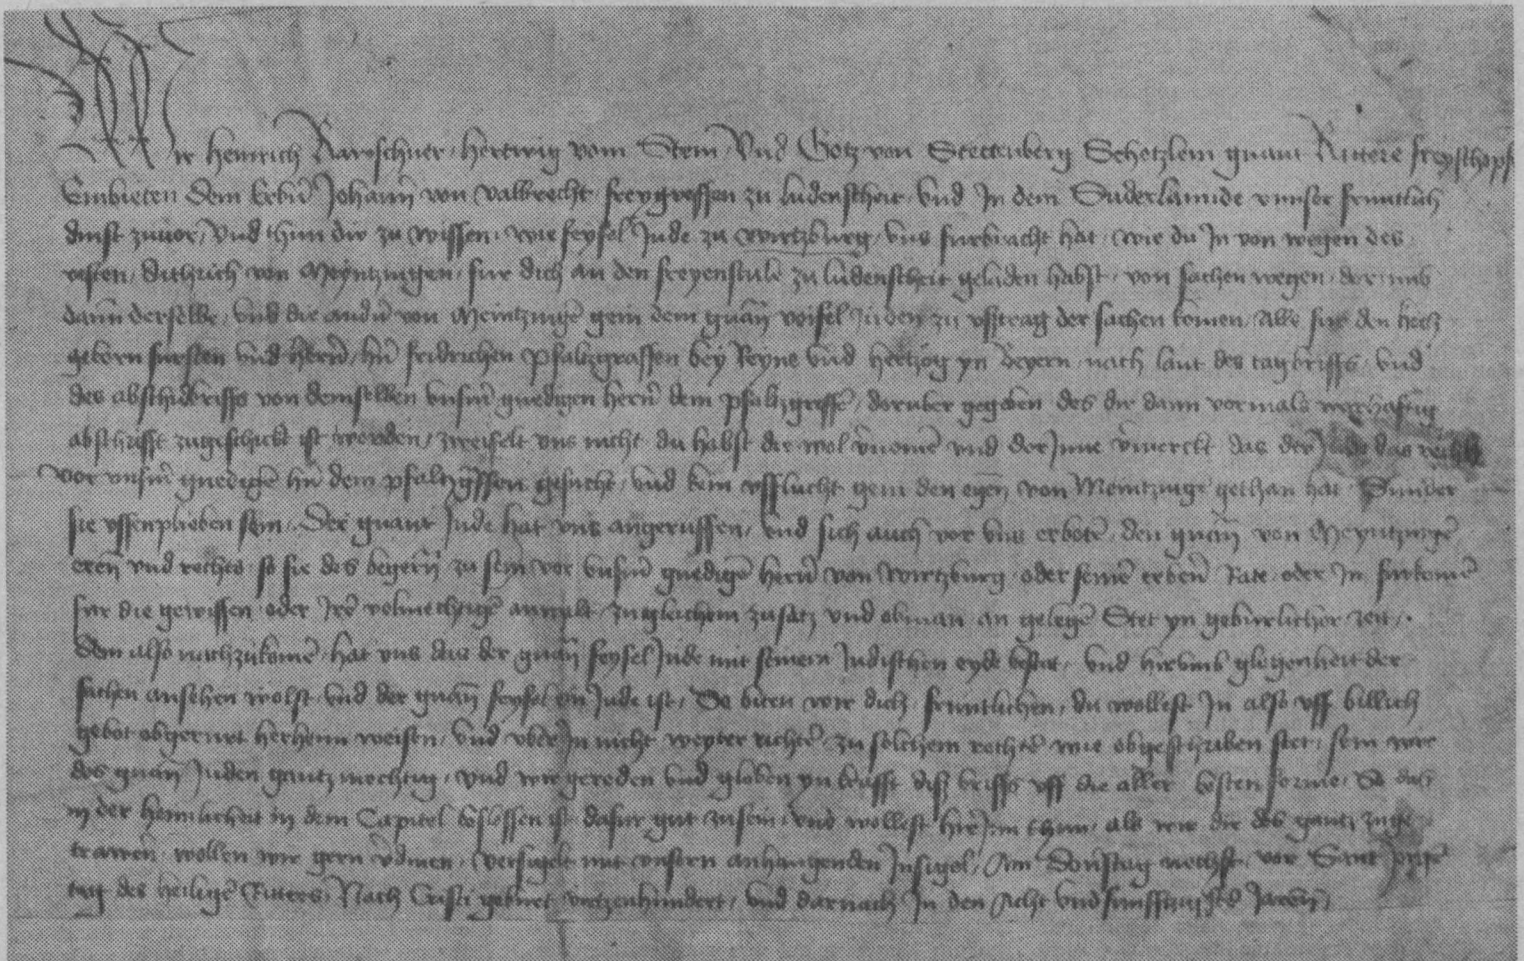 Wir Heinrich Marschner, Hertwig vom Stein, Vnd Gotz von Stettenberg Schotzlein gnant Rittere freyschopff
Embieten dem Erbñ Johanñ von Valbrecht, freygreffen zu ludenscheit, vnd In dem Suderlannde vnnser fruntlich
dinst zuuor, vnd thun dir zu wissen, wie feyfel Jude zu wirtzburg, vns furbracht hat, wie du In von wegen des
vesten, ditherich von Meyntzingen, fur dich an den freyenstule zu ludenscheit geladen habst, von sachen wegen, darumb
dann derselbe, vnd die andñ von Meintzingē gein dem gnañ veifel Juden zu vsstrag der sachen komen, Alle fur den hoch
gebern fursten vnd hernn, hñ fridrichen Pfaltzgraffen bey Reyne vnd hertzog yn beyern, nach laut des tagbriffs, vnd
des abschidbriffs von demselben vnsm̃ gnedigen hernn dem pfaltzgreffē, daruber gegeben des dir dann vormals
abschrifft zugeschickt ist worden, zweifelt vns nicht du habst die wol vñomē vnd der Inne vm̃erckt das der Jude das recht
vor vnsm̃ gnedigē hñ dem pfaltzgreffen gesucht, vnd kein vssflucht gein den egeñ von Meintzingē gethan hat, Sunder
sie vssenplieben sein, Der gnant Jude hat vns angeruffen, vnd sich auch vor vns erbotē, den gnañ von Meyntzingē
eren vnd rechts, so sie des begerñ zu sein vor vnsm̃ gnedigē hernn von wirtzburg, oder seinē erbern Rate, oder In furkomē
fur die gewissen, oder Ire volmechtigē anwalt, zu glichem zusatz vnd obman, an gelegē Stet yn geburlicher zeit,
Dem also nachzukomē, hat vns das der gnañ feyfel Jude mit seinem Judischen eyde bestet, vnd hirumb glegenheit der
sachen ansehen wolst, vnd der gnañ feyfel ein Jude ist, So biten wir dich, fruntlichen, du wollest In also vff billich
gebot obgerurt herheim weisen, vnd vber In nicht weyter richtē, zu solchem rechtē wie obgeschriben stet, sein wir
des gnañ Juden gantz mechtig, vnd wir gereden vnd globen yn krafft diß briffs vff die aller besten forme, So das
in der heimlicheit in dem Capitel beslossen ist dafur gut zusein, vnd wollest hir Inn thun, als wir dir des gantz zuge
trawen, wollen wir gern vdinen, versigelt mit vnsern anhangenden Insigel, Am donrstag nechst, vor Sant Jorgē
tag des heiligē Ritters, Nach Cristi geburt virtzenhundert, vnd darnach In den Acht vnd funfftzigstē Jarenn,